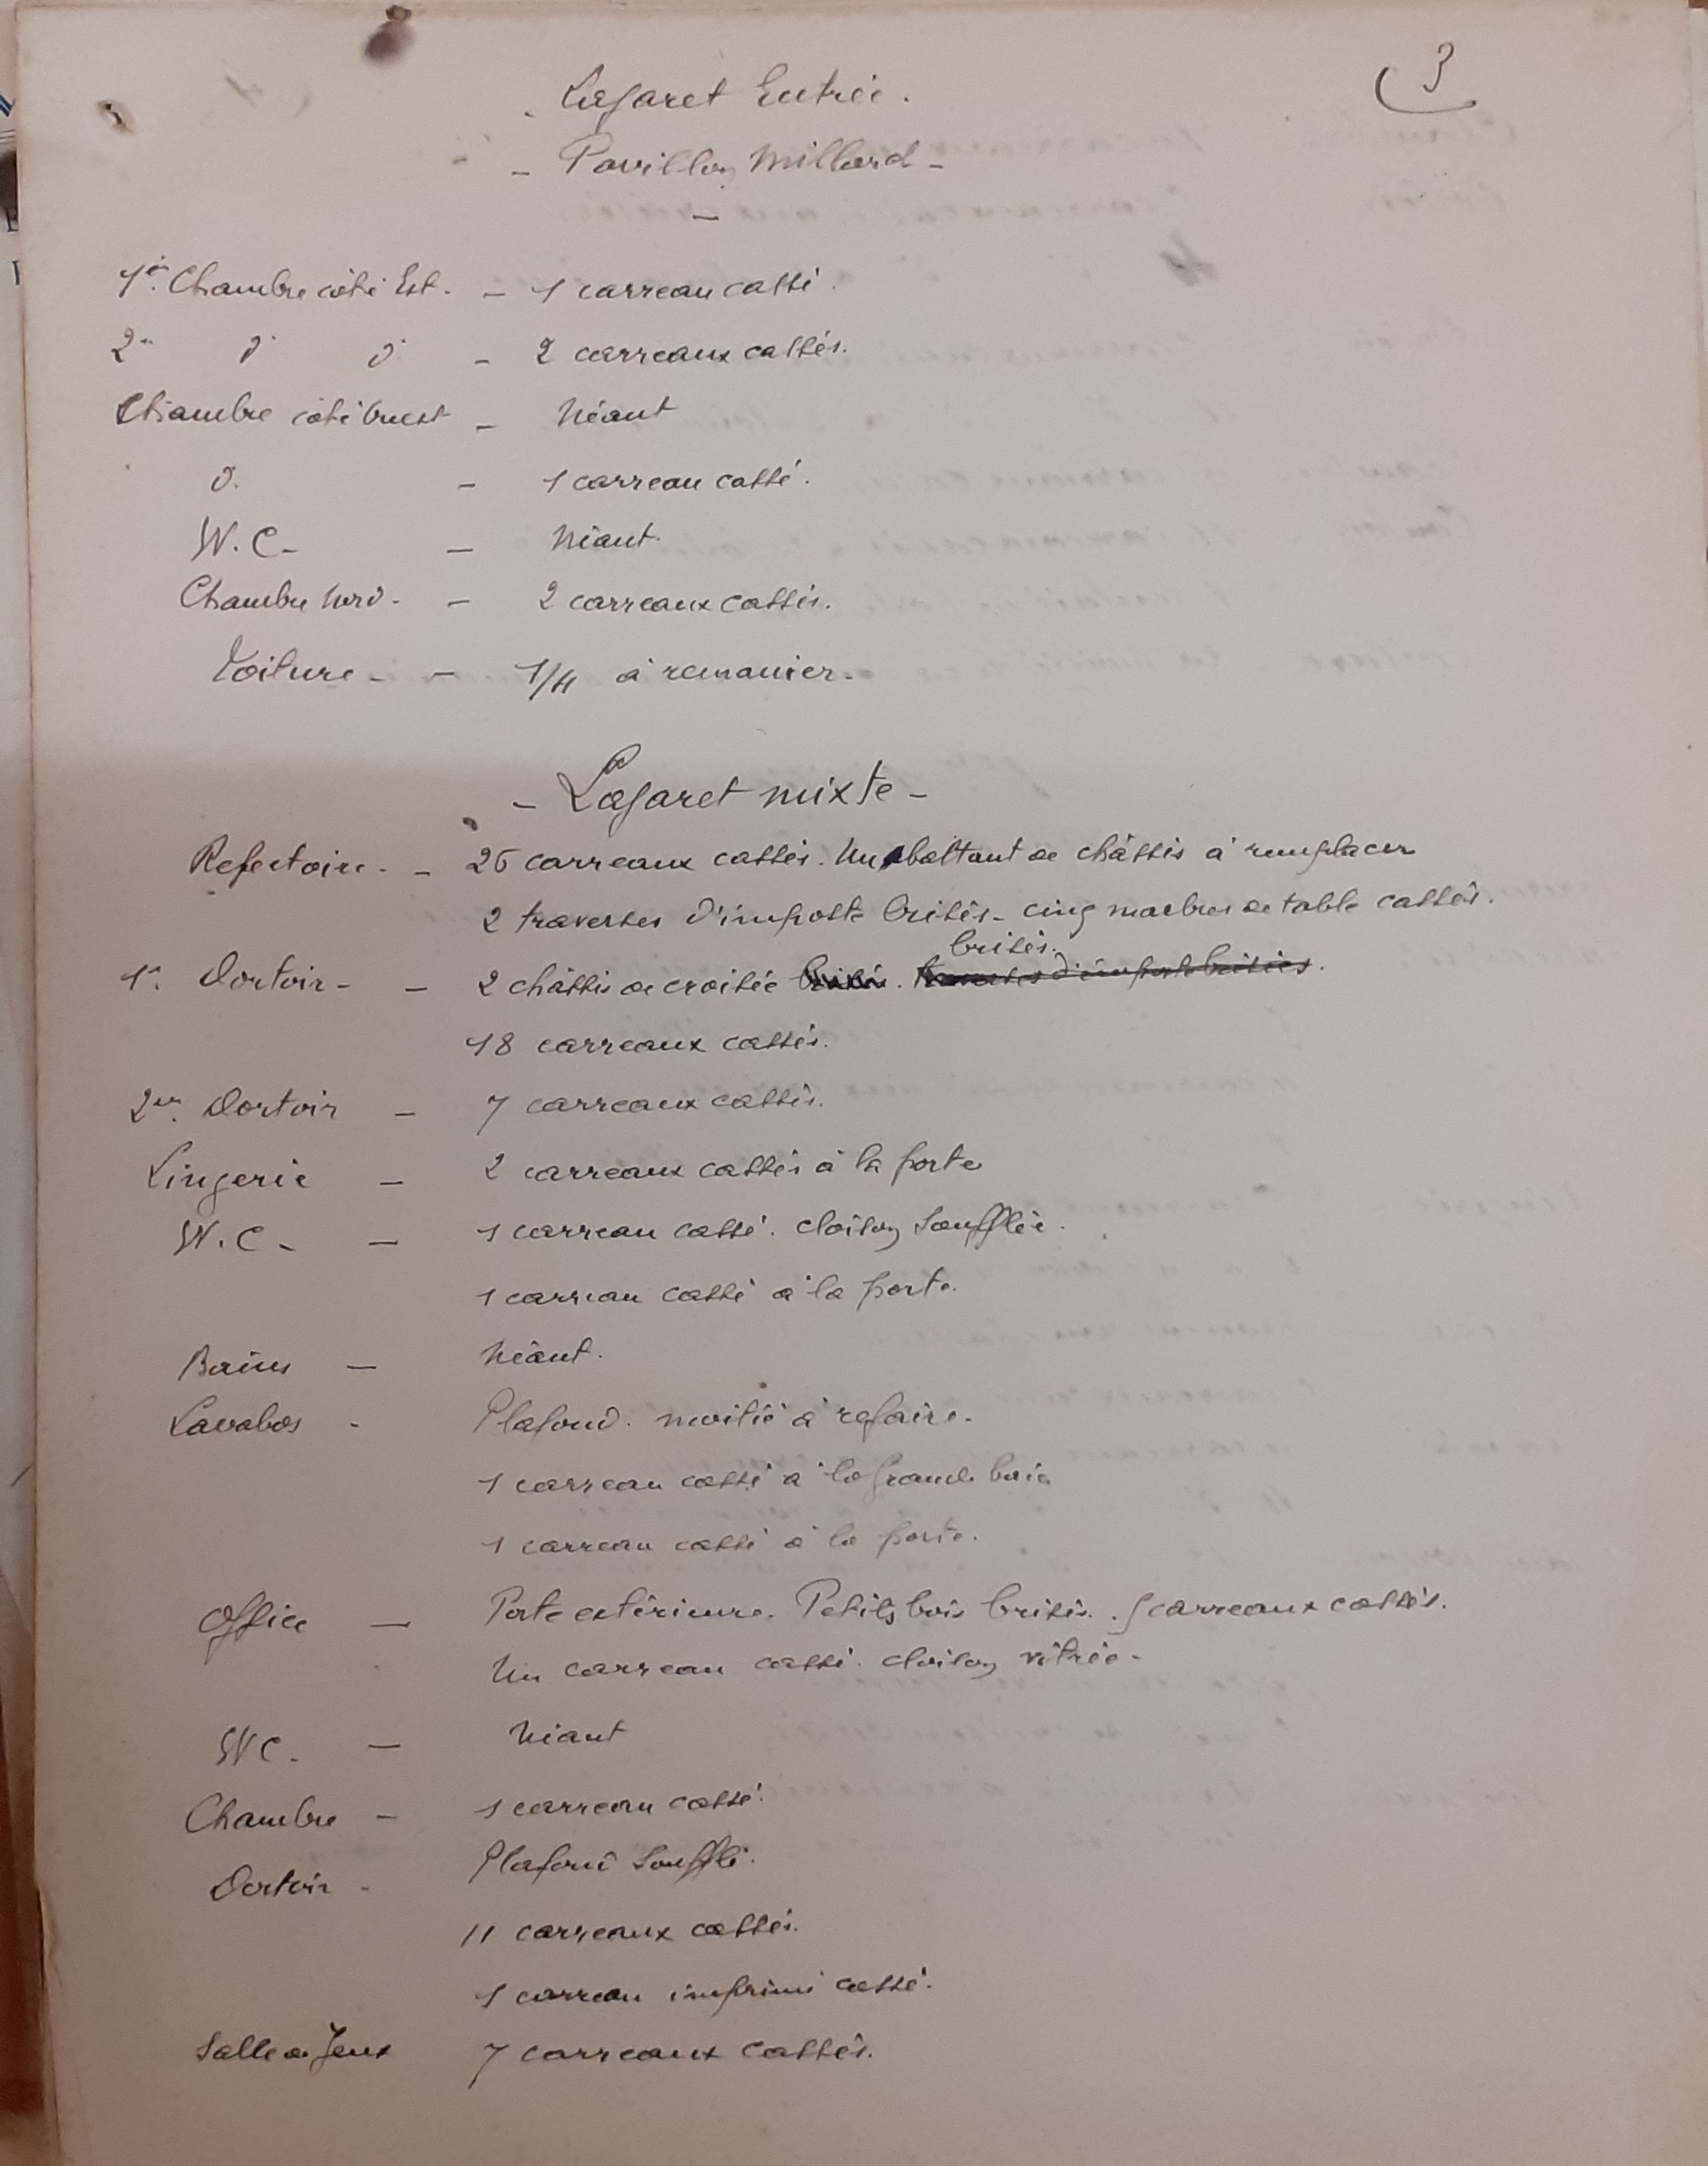 3
Lazaret Entrée.
- Pavillon Millard -
1ère Chambre côté Est. - 1 carreau cassé.
2e d° d° - 2 carreaux cassés.
Chambre côté Ouest - Néant
d° - 1 carreau cassé.
W.C - - Néant
Chambre Nord - - 2 carreaux cassés.
Toiture - - 1/4 à remanier -
- Lazaret mixte -
Refectoire - - 25 carreaux cassés. Un abattant de châssis à remplacer
2 traverses d'imposte brisés - cinq marbres de table cassés.
brisés.
1er Dortoir - - 2 châssis de croisée brisés. traverses d'imposte brisées.
18 carreaux cassés.
2em Dortoir - 7 carreaux cassés.
Lingerie - 2 carreaux cassés à la porte
W.C - - 1 carreau cassé. cloison soufflée.
1 carreau cassé à la porte.
Bains - Néant.
Lavabos - Plafond. moitié à refaire -
1 carreau cassé à la grande baie
1 carreau cassé à la porte.
Office - Porte extérieure. Petits bois brisés. 5 carreaux cassés.
Un carreau cassé. cloison vitrée -
WC. - Néant
Chambre - 1 carreau cassé.
Dortoir - Plafond soufflé.
11 carreaux cassés.
1 carreau imprimé cassé.
Salle de Jeux 7 carreaux cassés.